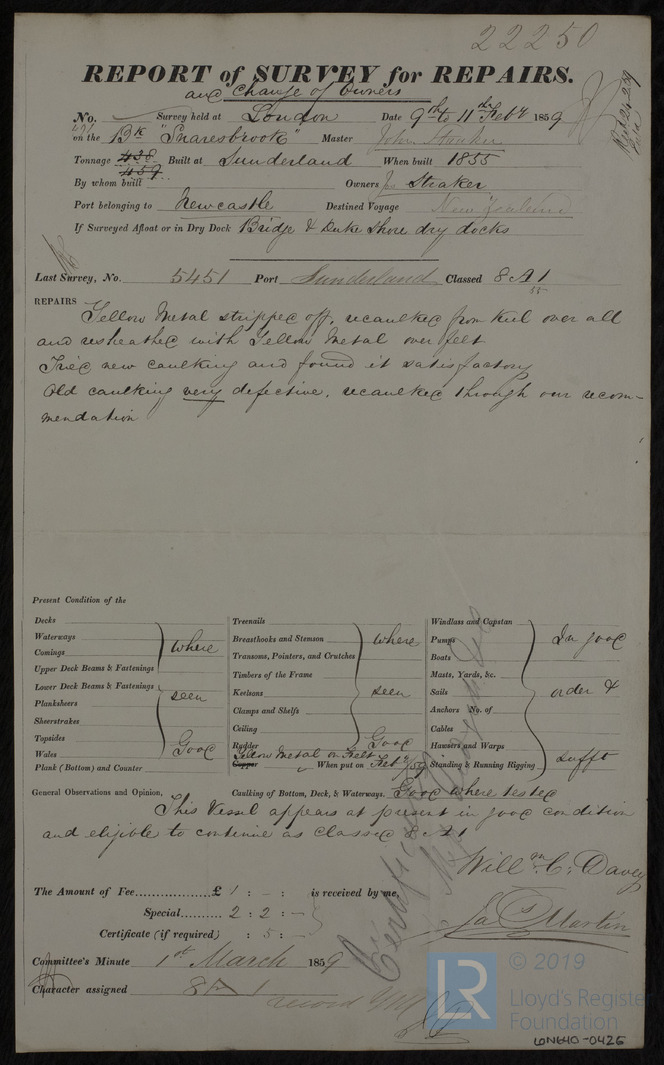 22250
REPORT of SURVEY for REPAIRS.
and Change of Owners
No. Survey held at London Date 9th to 11th Feby 1859
on the Bk "Snaresbrook" Master John Straker
Tonnage 438 459 Built at Sunderland When built 1855
By whom built Owners Jos Straker
Port belonging to Newcastle Destined Voyage New Zealand
If Surveyed Afloat or in Dry Dock Bridge & Duke Shore dry docks
Last Survey, No. 5451 Port Sunderland Classed 8 A 1
55
REPAIRS Yellow Metal stripped off, recaulked from keel over all
and resheathed with Yellow Metal over felt
Tried new caulking and found it satisfactory
Old caulking very defective, recaulked through our recom-
mendation
Present Condition of the
Decks
Waterways
Comings
Upper Deck Beams & Fastenings
Lower Deck Beams & Fastenings
Planksheers
Sheerstrakes
Topsides
Wales
Plank (Bottom) and Counter
where
seen
Good
Treenails
Breasthooks and Stemson
Transoms, Pointers, and Crutches
Timbers of the Frame
Keelsons
Clamps and Shelfs
Ceiling
Rudder
where
seen
Good
Yellow Metal on Felt
Copper When put on Feby /59
Windlass and Capstan
Pumps
Boats
Masts, Yards, &c.
Sails
Anchors No. of
Cables
Hawsers and Warps
Standing & Running Rigging
In good
order &
sufft
General Observations and Opinion, Caulking of Bottom, Deck, & Waterways. Good where tested
This Vessel appears at present in good condition
and eligible to continue as classed 8 A 1
Willm C. Davey
The Amount of Fee £ 1 : - : is received by me,
Special 2 : 2 : -
Jas Martin
Certificate (if required) : 5 : -
Committee's Minute 1st March 1859
Character assigned 8 A 1
LR
© 2019
Lloyd's Register
Foundation
LON640-0426